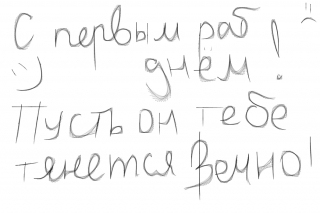 С первым раб
днём!
Пусть он тебе
тянется Вечно!